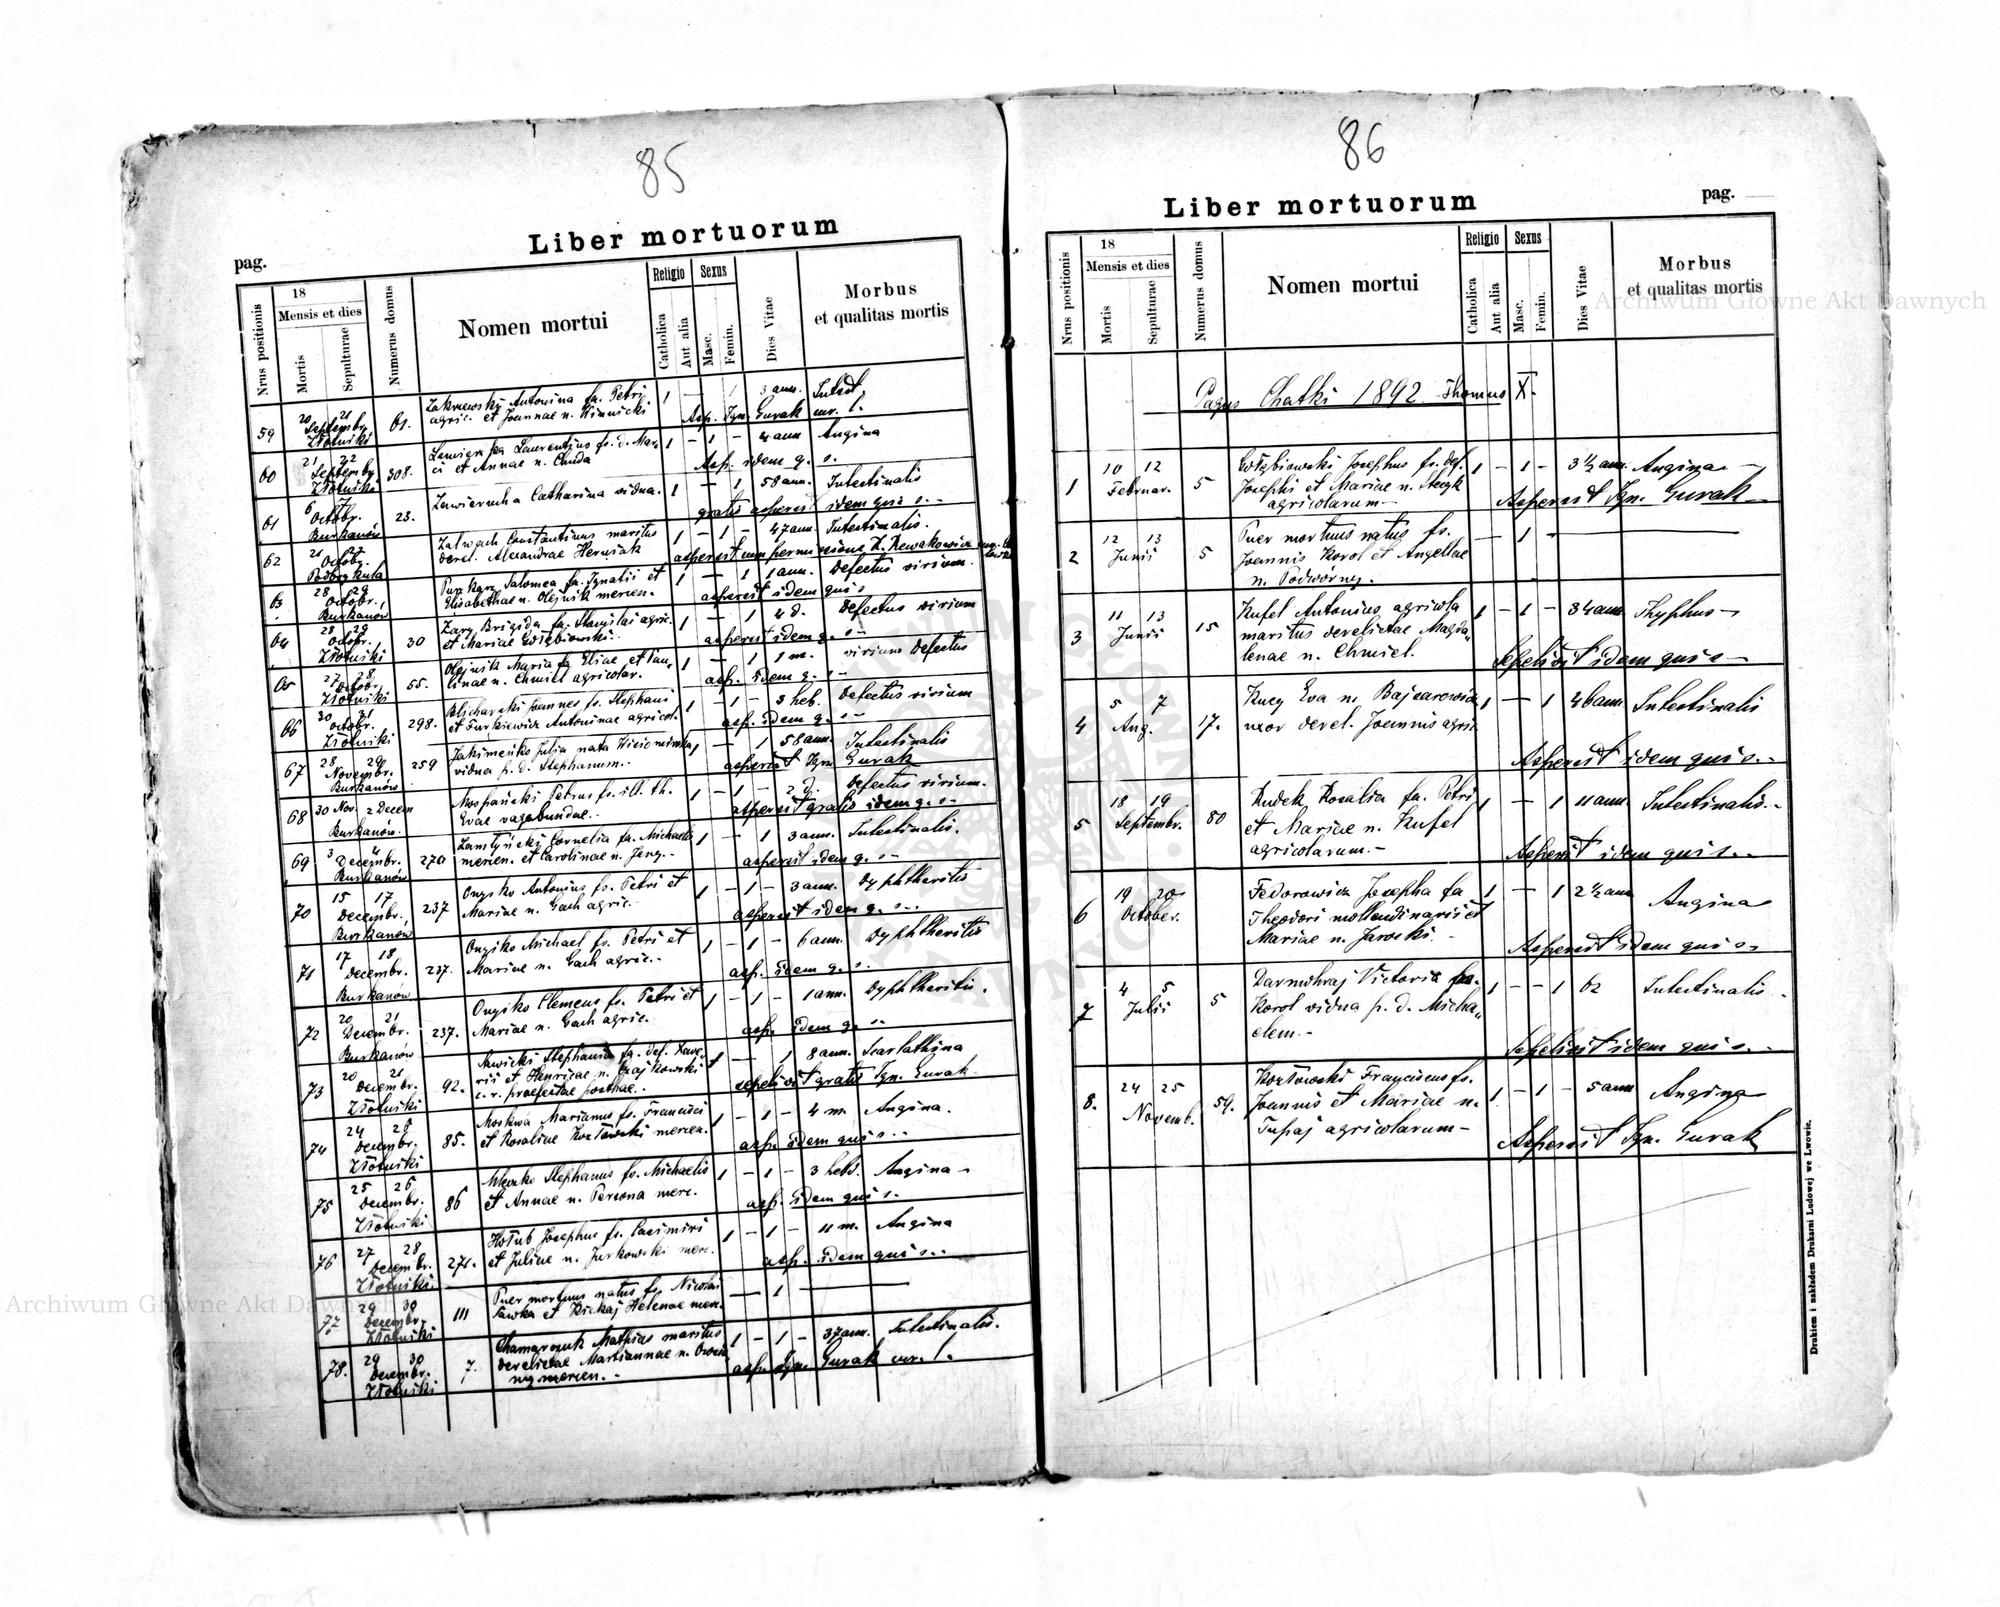 85
Liber mortuorum
pag.
Nrus positionis
18
Mensis et dies
Mortis
Sepulturae
Numerus domus
Nomen mortui
Religio
Catholica
Aut alia
Sexus
Masc.
Femin.
Dies Vitae
Morbus
et qualitas mortis
59
20 21
Septembr.
Złotniki
61.
Zakrzewski Antonina fa. Petri
agric. et Joannae n. Zimnicki
1 1 3 ann. Intest.
Asp. Ign. Gurak cur. l.
60
21 22
Septembr.
Złotniki
308.
Laurentius fs. d. Mar
ci et Annae n. Chuda
1 - 1 - 4 ann Angina
Asp. idem q. s.
61
6 7
Octobr.
Burkanów
23.
Zawierucha Catharina vidua.
1 - 1 58 ann. Intestinalis
gratis aspersit idem qui s.
62
21 22
Octobr.
Zalwach Constantinus maritus
derel. Alexandrae Herniak
1 - 1 - 47 ann. Intestinalis.
aspersit cum permissione
63
28 29
Octobr.
Burkanów
Salomea fa. Ignatii et
Elisabethae n. Olejnik mercen.
1 - 1 1 ann. Defectus virium.
aspersit idem qui s
64
28 29
Octobr.
Złotniki
30
Brigida fa. Stanislai agric.
et Mariae Gołębiowski
1 - 1 4 d. Defectus virium
aspersit idem q. s
65
27 28
Octobr.
Złotniki
55.
Olejnik Maria fa Eliae et Pau
linae n. Chmiel agricolar.
1 - 1 1 m. virium Defectus
asp. idem q. s
66
30 31
Octobr.
Złotniki
298.
Joannes fs. Stephani
et Turkiewicz Antoninae agricol.
1 - 1 - 3 heb. Defectus virium
asp. idem q. s
67
28 29
Novembr.
Burkanów
259
Jakimeńko Julia nata
vidua p. d. Stephanum.
1 - 1 58 ann. Intestinalis
aspersit Ign. Gurak
68
30 Nov. 2 Decem
Burkanów.
Petrus fs. ill. th.
Evae vagabundae.
1 - 1 - 2 d. Defectus virium.
aspersit gratis idem q. s
69
3 4
Decembr.
Burkanów
270
Cornelia fa. Michaelis
mercen. et Carolinae n. Jeny.
1 - 1 3 ann. Intestinalis.
aspersit idem q. s
70
15 17
Decembr.
Burkanów
237
Onyśko Antonius fs. Petri et
Mariae n. Gach agric.
1 - 1 - 3 ann. Dyphtheritis
aspersit idem q. s
71
17 18
Decembr.
Burkanów
237.
Onyśko Michael fs. Petri et
Mariae n. Gach agric.
1 - 1 - 6 ann. Dyphtheritis
asp. idem q. s.
72
20 21
Decembr.
Burkanów
237.
Onyśko Clemens fs. Petri et
Mariae n. Gach agric.
1 - 1 - 1 ann. Dyphtheritis.
asp. idem q. s.
73
20 21
Decembr.
Złotniki
92.
Sawicki Stephania fa. def. Xave
rii et Henricae n. Czajkowski
c. r. praefectae posthae.
1 - 1 8 ann. Scarlathina
sepelivit gratis Ign. Gurak
74
24 26
Decembr.
Złotniki
85.
Moskwa Marianus fs. Francisci
et Rosaliae Kozłowski mercen.
1 - 1 - 4 m. Angina.
asp. idem qui s.
75
25 26
Decembr.
Złotniki
86
Stephanus fs. Michaelis
et Annae n. Persona merc.
1 - 1 - 3 hebd. Angina
asp. idem qui s.
76
27 28
Decembr.
Złotniki
271.
Hołub Josephus fs. Casimiri
et Juliae n. Jurkowski merc.
1 - 1 - 11 m. Angina
asp. idem qui s.
77
29 30
Decembr.
Złotniki
111
Puer mortuus natus fs. Nicolai
Sawka et Kickaj Helenae merc.
- 1 -
78.
29 30
Decembr.
Złotniki
7.
Mathias maritus
derelictae Mariannae n.
mercen.
1 - 1 - 37 ann. Intestinalis.
asp. Ign. Gurak cur. l.
86
Liber mortuorum
pag.
Nrus positionis
18
Mensis et dies
Mortis
Sepulturae
Numerus domus
Nomen mortui
Religio
Catholica
Aut alia
Sexus
Masc.
Femin.
Dies Vitae
Morbus
et qualitas mortis
Pagus Chatki 1892 Thomus X.
1
10 12
Februar.
5
Gołębiowski Josephus fs. def.
Josephi et Mariae n.
agricolarum
1 - 1 - 3 ½ ann. Angina
Aspersit Ign. Gurak
2
12 13
Junii
5
Puer mortuus natus fs.
Joannis Korol et Angellae
n. Podworny.
- 1 -
3
11 13
Junii
15
Kufel Antonius agricola
maritus derelictae Magda
lenae n. Chmiel.
1 - 1 - 34 ann Thyphus
Sepelivit idem qui s
4
5 7
Aug.
17.
Kucy Eva n. Bajcarowicz
uxor derel. Joannis agric.
1 - 1 46 ann Intestinalis
Aspersit idem qui s.
5
18 19
Septembr.
80
Kudek Rosalia fa. Petri
et Mariae n. Kufel
agricolarum.
1 - 1 11 ann. Intestinalis.
Aspersit idem qui s.
6
19 20
October.
Fedorowicz Josepha fa
Theodori mollendinarii et
Mariae n. Jarocki.
1 - 1 2 ½ ann Angina
Aspersit idem qui s
7
4 5
Julii
5
Victoria fa.
Korol vidua p. d. Micha
elem.
1 - - 1 62 Intestinalis.
Sepelivit idem qui s.
8.
24 25
Novemb.
59.
Kozłowski Franciscus fs.
Joannis et Mariae n.
Tupaj agricolarum
1 - 1 - 5 ann Angina
Aspersit Ign. Gurak
Drukiem i nakładem Drukarni Ludowej we Lwowie.
Archiwum Główne Akt Dawnych
Archiwum Główne Akt Dawnych